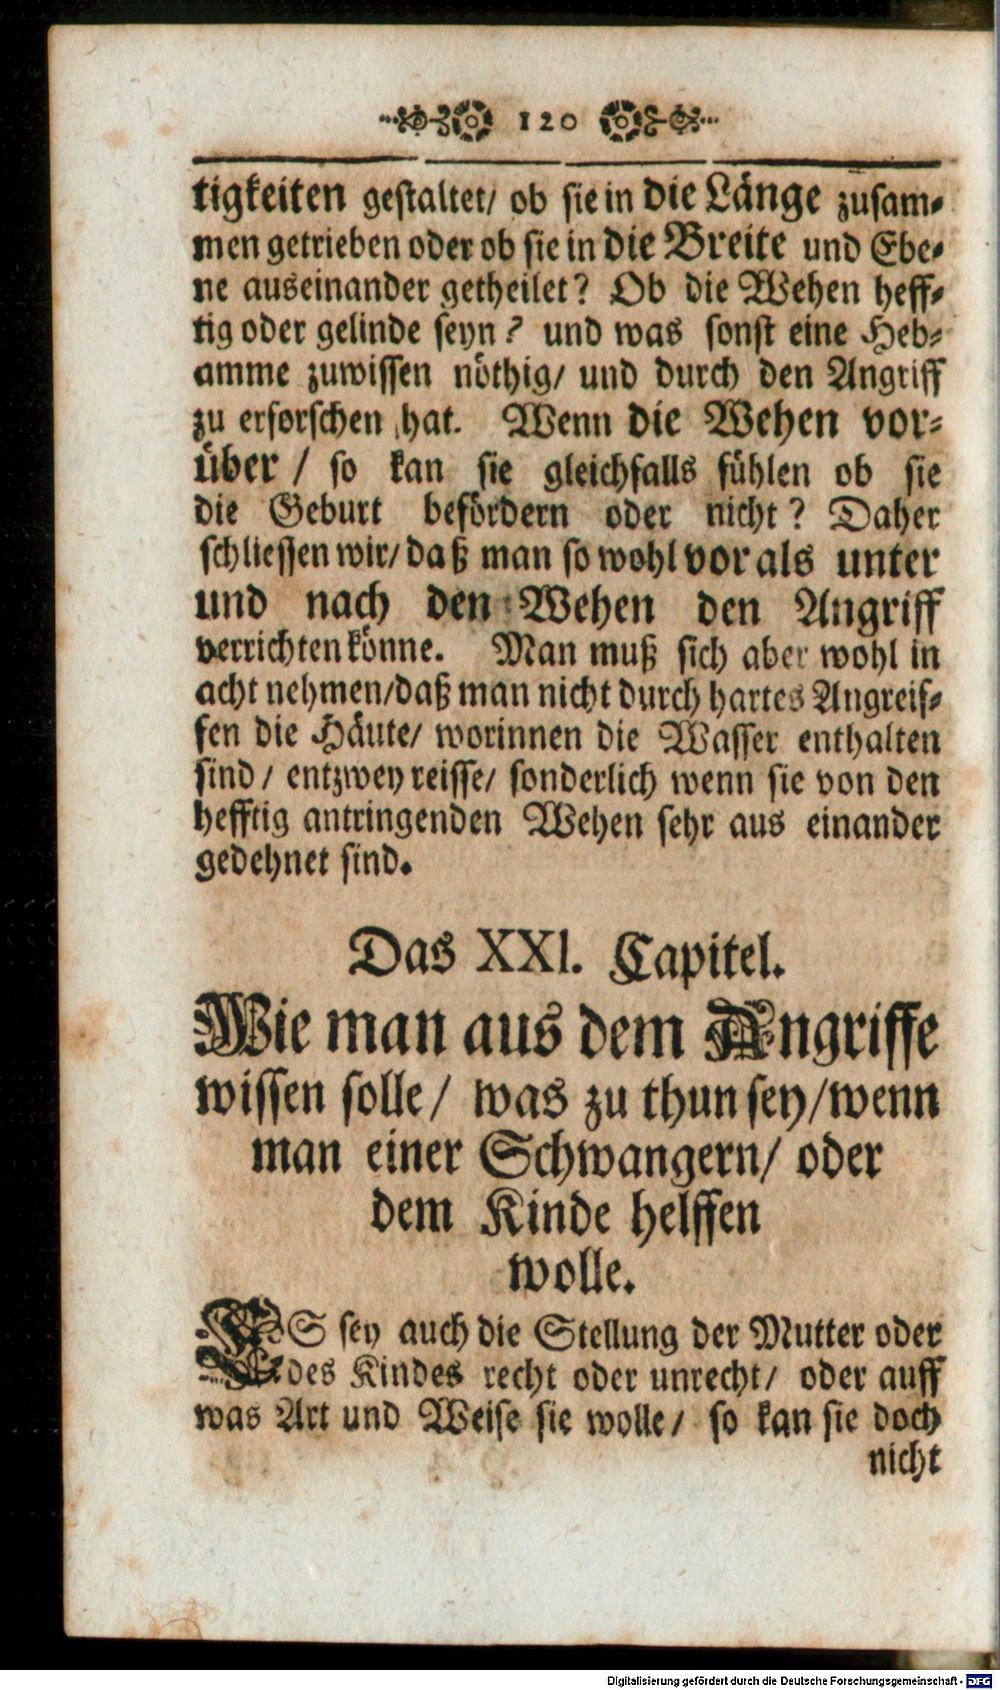 120
tigkeiten gestaltet/ ob sie in die Länge zusam-
men getrieben oder ob sie in die Breite und Ebe-
ne auseinander getheilet? Ob die Wehen heff-
tig oder gelinde seyn? und was sonst eine Heb-
amme zuwissen nöthig/ und durch den Angriff
zu erforschen hat. Wenn die Wehen vor-
über / so kan sie gleichfalls fühlen ob sie
die Geburt befördern oder nicht? Daher
schliessen wir/ daß man so wohl vor als unter
und nach den Wehen den Angriff
verrichten könne. Man muß sich aber wohl in
acht nehmen/ daß man nicht durch hartes Angreif-
fen die Häute/ worinnen die Wasser enthalten
sind/ entzwey reisse/ sonderlich wenn sie von den
hefftig antringenden Wehen sehr aus einander
gedehnet sind.
Das XXI. Capitel.
Wie man aus dem Angriffe
wissen solle/ was zu thun sey/ wenn
man einer Schwangern/ oder
dem Kinde helffen
wolle.
ES sey auch die Stellung der Mutter oder
des Kindes recht oder unrecht/ oder auff
was Art und Weise sie wolle/ so kan sie doch
nicht
Digitalisierung gefördert durch die Deutsche Forschungsgemeinschaft - DFG